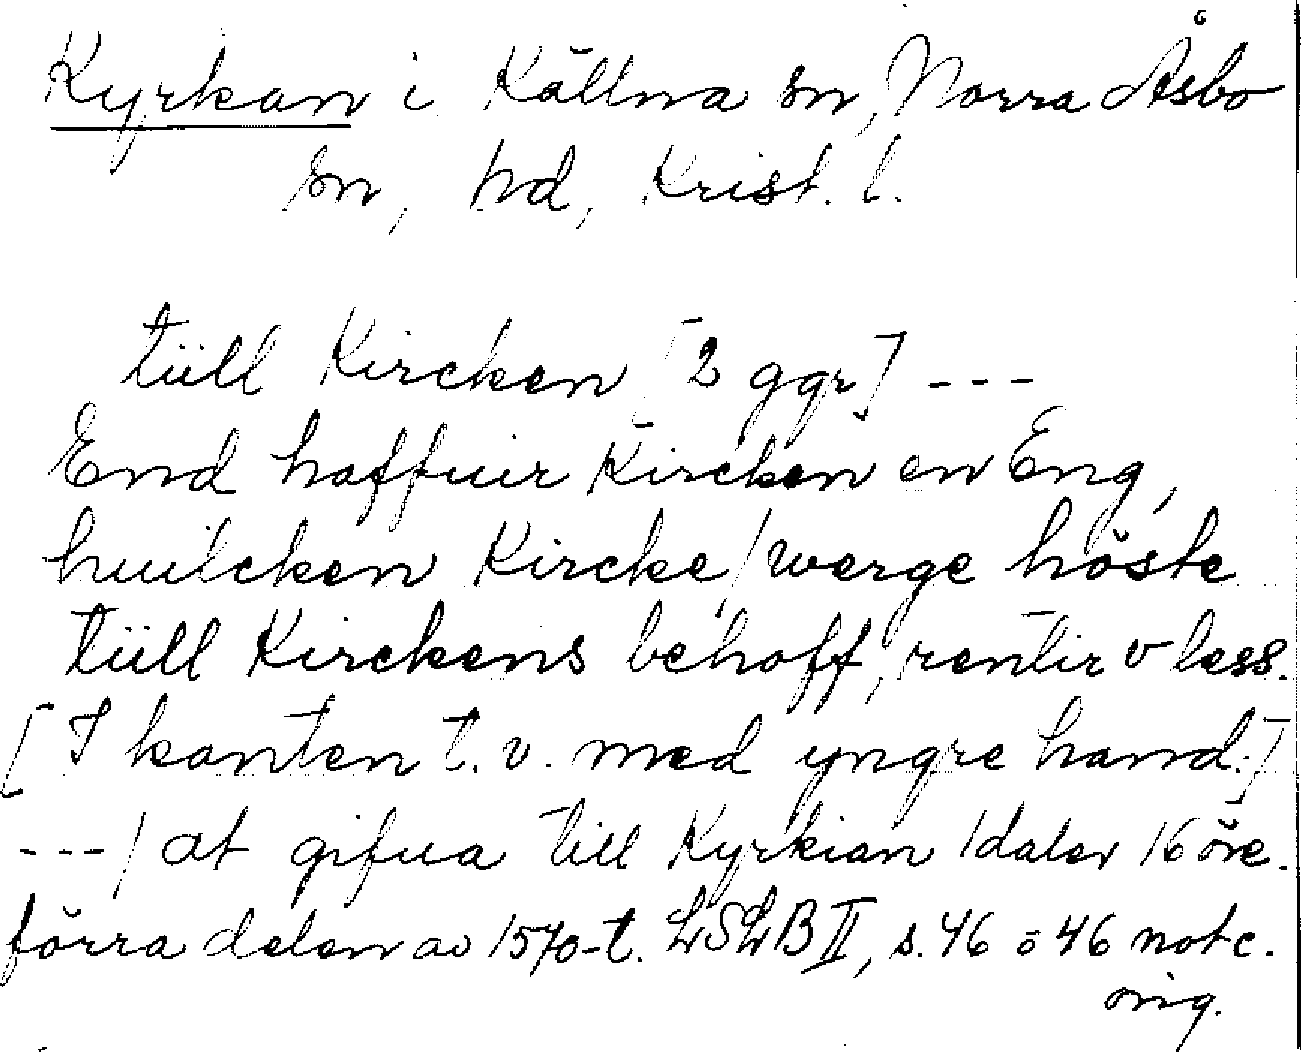 Kyrkan i Källna sn, Norra Åsbo
sn, hd, Krist. l.
tüll Kircken [2 ggr] ---
End haffuir Kircken en Eng,
huilcken Kircke/werge höste
tüll Kirckens behoff, rentir v less.
[I kanten t.v. med yngre hand:]
---/ at gifua till Kyrkian 1 daler 16 öre.
förra delen av 1570-t. LSLB II, s. 46 o 46 not c.
orig.